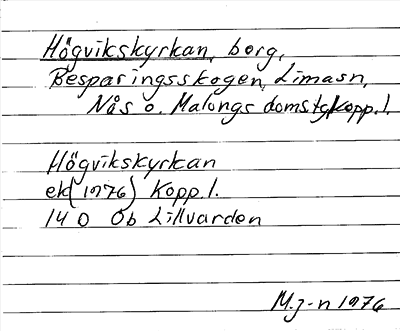 Högvikskyrkan, berg,
Besparingsskogen, Limasn,
Nås o. Malungs domstg, Kopp.l.
Högvikskyrkan
ek (1976) Kopp.l.
14 D Ob Lillvarden
M.J-n 1976